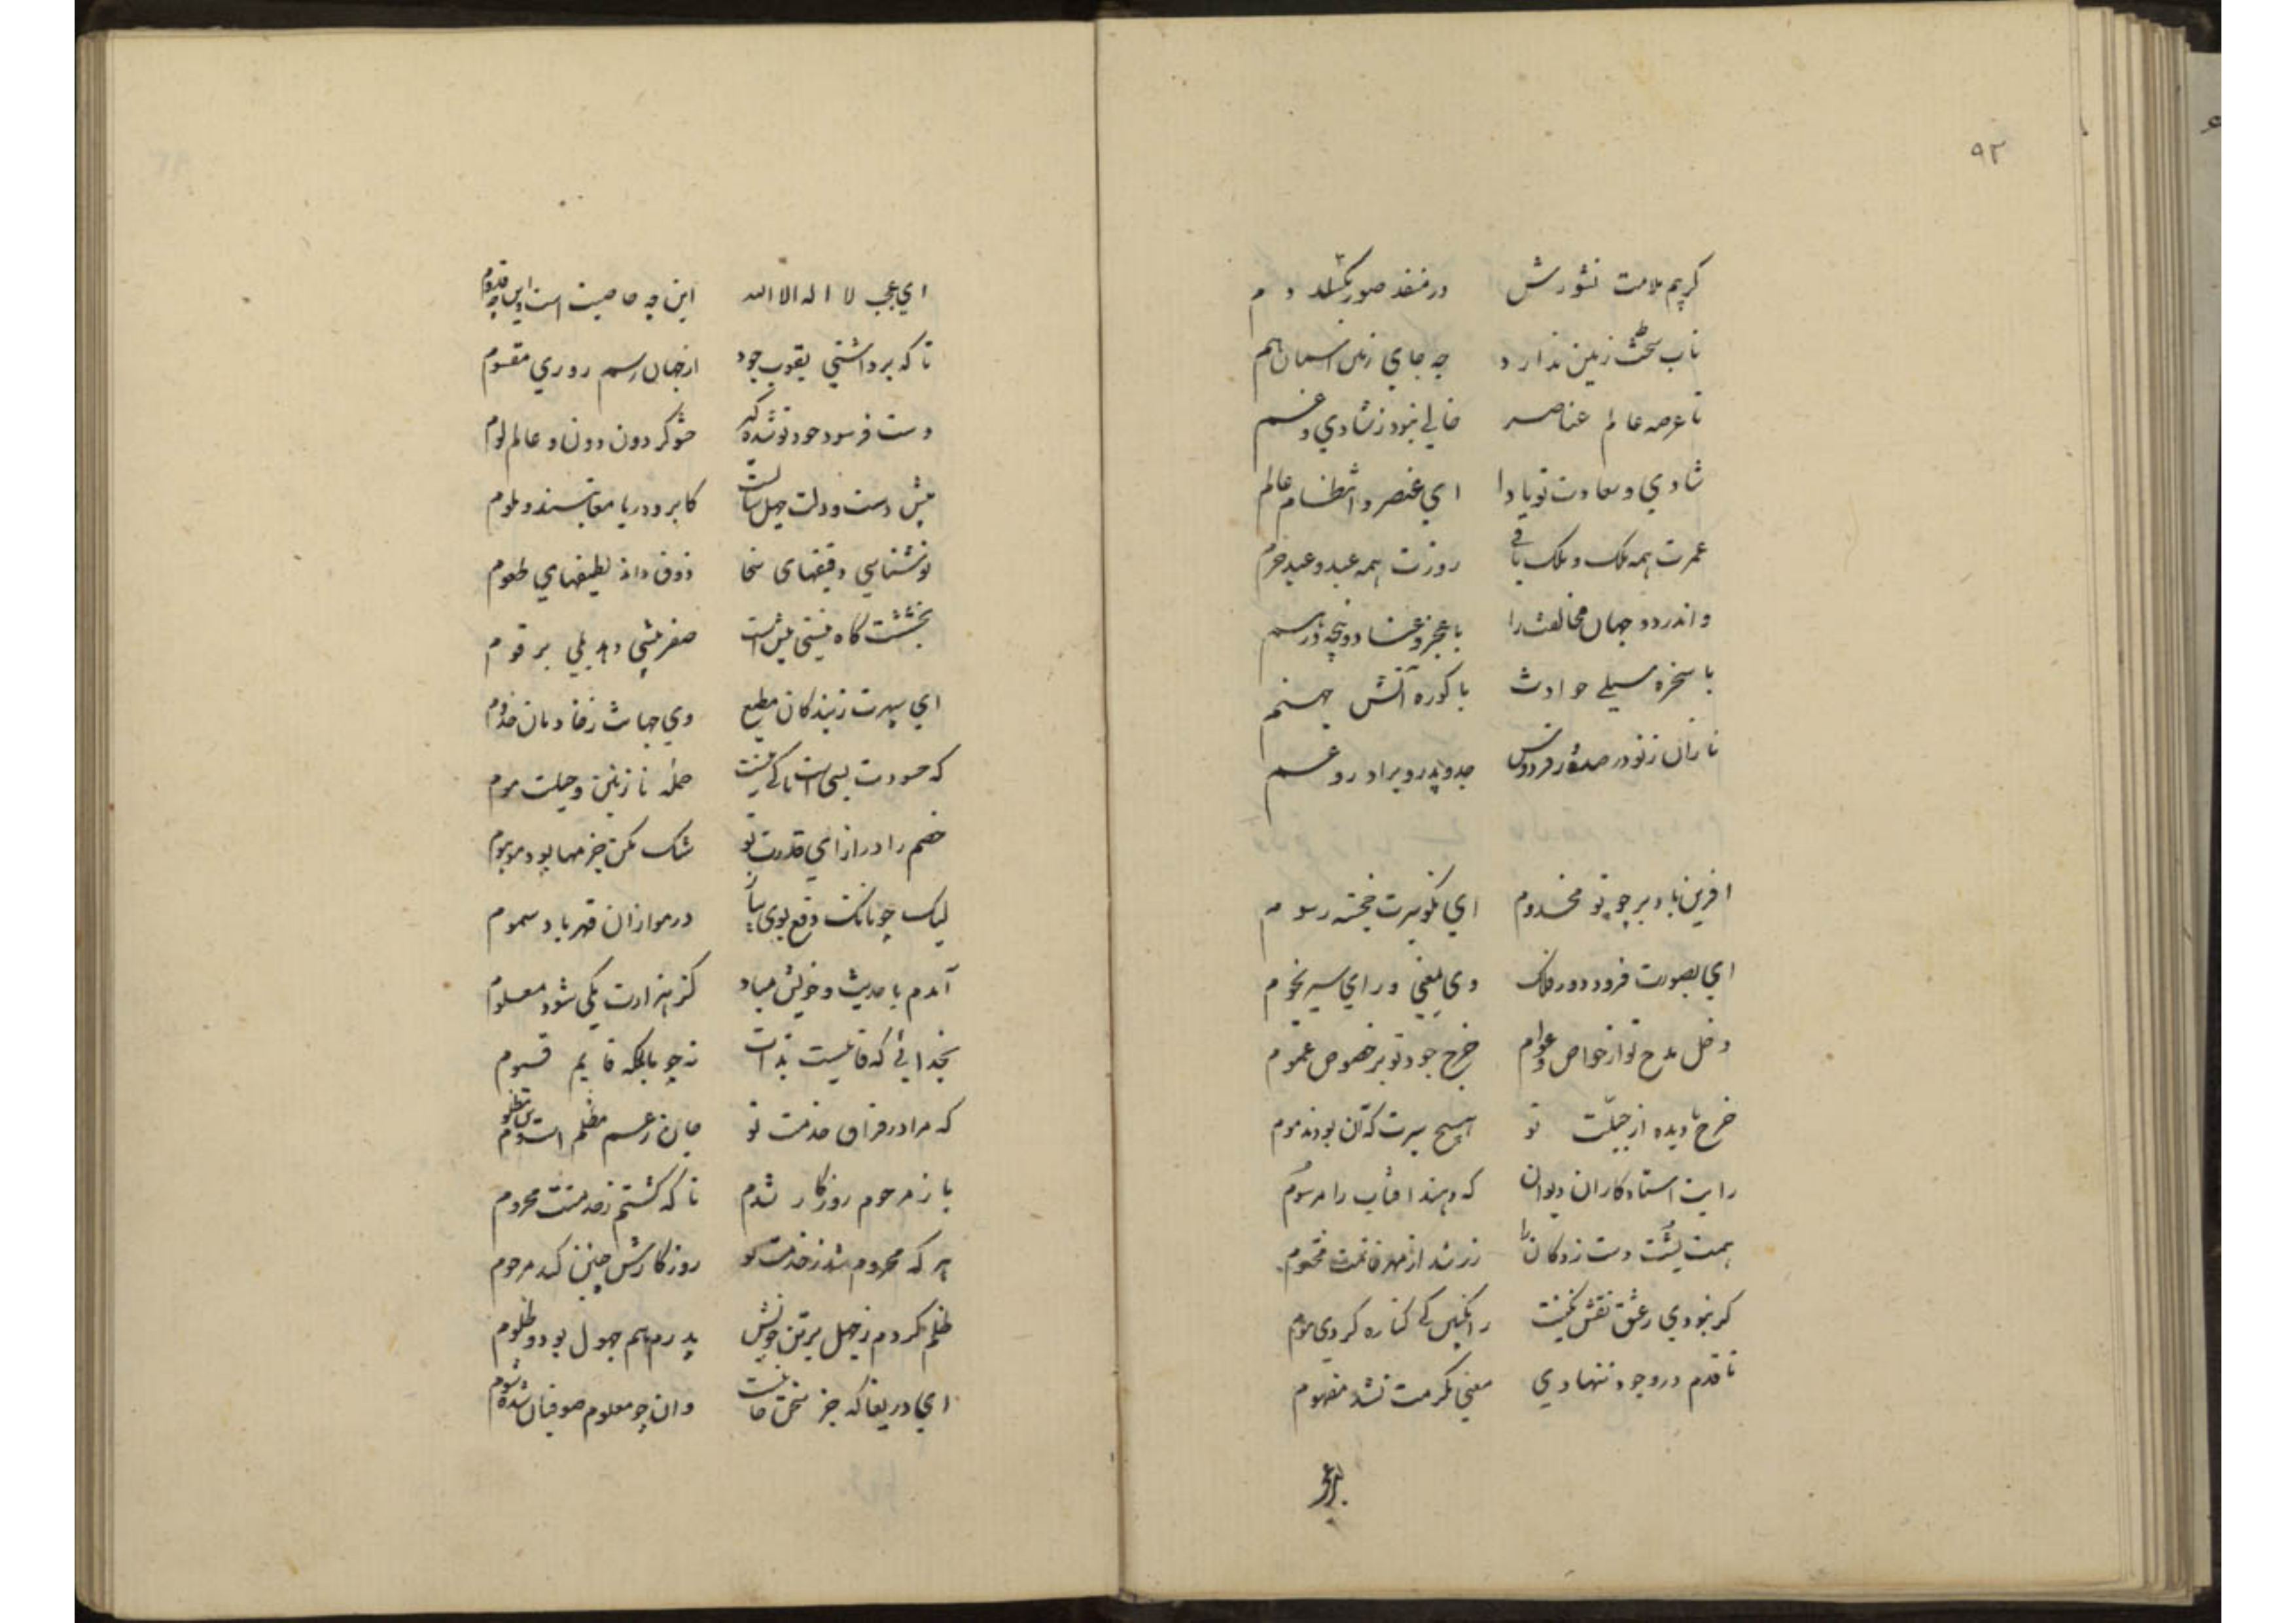 ۹۲
کریم ملامت نشورش در منفذ صور بکسلد دم
تاب سخطت زمین ندارد چه جای زمین اسمان هم
تا عرصه عالم عناصر خالی نبود ز شادی و غم
شادی و سعادت تو بادا ای عنصر و انتظام عالم
عمرت همه ملک و ملک باقی روزت همه عید و عید خرم
واندر دو جهان مخالفت را با عجز و عنا دو پنجه در هم
یا سخره سیلی حوادث یا کوره آتش جهنم
نازان ز تو در صدور فردوس جد و پدر و برادر و عم
افرین باد بر چو تو مخدوم ای نکو سیرت خجسته رسوم
ای بصورت فرود دور فلک وی بمعنی ورای سیر نجوم
دخل مدح تو از خواص و عوام خرج جود تو بر خصوص و عموم
خرج نادیده از جبلت تو هیچ سیرت که آن بود مذموم
رایت استاد کاران دیوان که دهند افتاب را مرسوم
همت پشت دست زد کان را زر شد از مهر خاتمت مختوم
کر نبودی ز عشق نقش نکینت ز انکبین کی کناره کردی موم
تا قدم در وجود ننهادی معنی مکرمت نشد مفهوم
ای عجب لا اله الا الله این چه خاصیت است و این چه قدوم
تا که برداشتی یقوب جود از جهان رسم روزی مقسوم
دست فرسود جود تو شده کیر حشو کردون دون و عالم لوم
پیش دست و دلت چهل سالست کابر و دریا معاتبند و ملوم
تو شناسی دقیقهای سخا ذوق داند لطیفهای طعوم
بخششت کاه نیستی بیش است صفر بیشی دهد بلی بر قوم
ای سپهرت ز بندکان مطیع وی جهانت ز خادمان خدوم
که حسودت بسی است تا کی نیست حمله نازنین و حیلت مرم
خصم را در ازای قدرت تو شک مکن جز مها بود موهوم
لیک چونانکت دفع بوی پیاز در موازان قهر باد سموم
آمدم با حدیث و خویش مباد کز هزارت یکی شود معلوم
بخدائی که قایمست بذات نه چو ما بلکه قایم قیوم
که مرا در فراق خدمت تو جان ز غم مظلم است و تن مظلوم
باز مرحوم روزکار شدم تا که کشتم ز خدمتت محروم
هر که محروم شد ز خدمت تو روزکارش چنین کند مرحوم
ظلم کردم ز جهل بر تن خویش پدرم هم جهول بود و ظلوم
ای دریغا که جز سخن جانیست وان چو معلوم صوفیان شده شوم